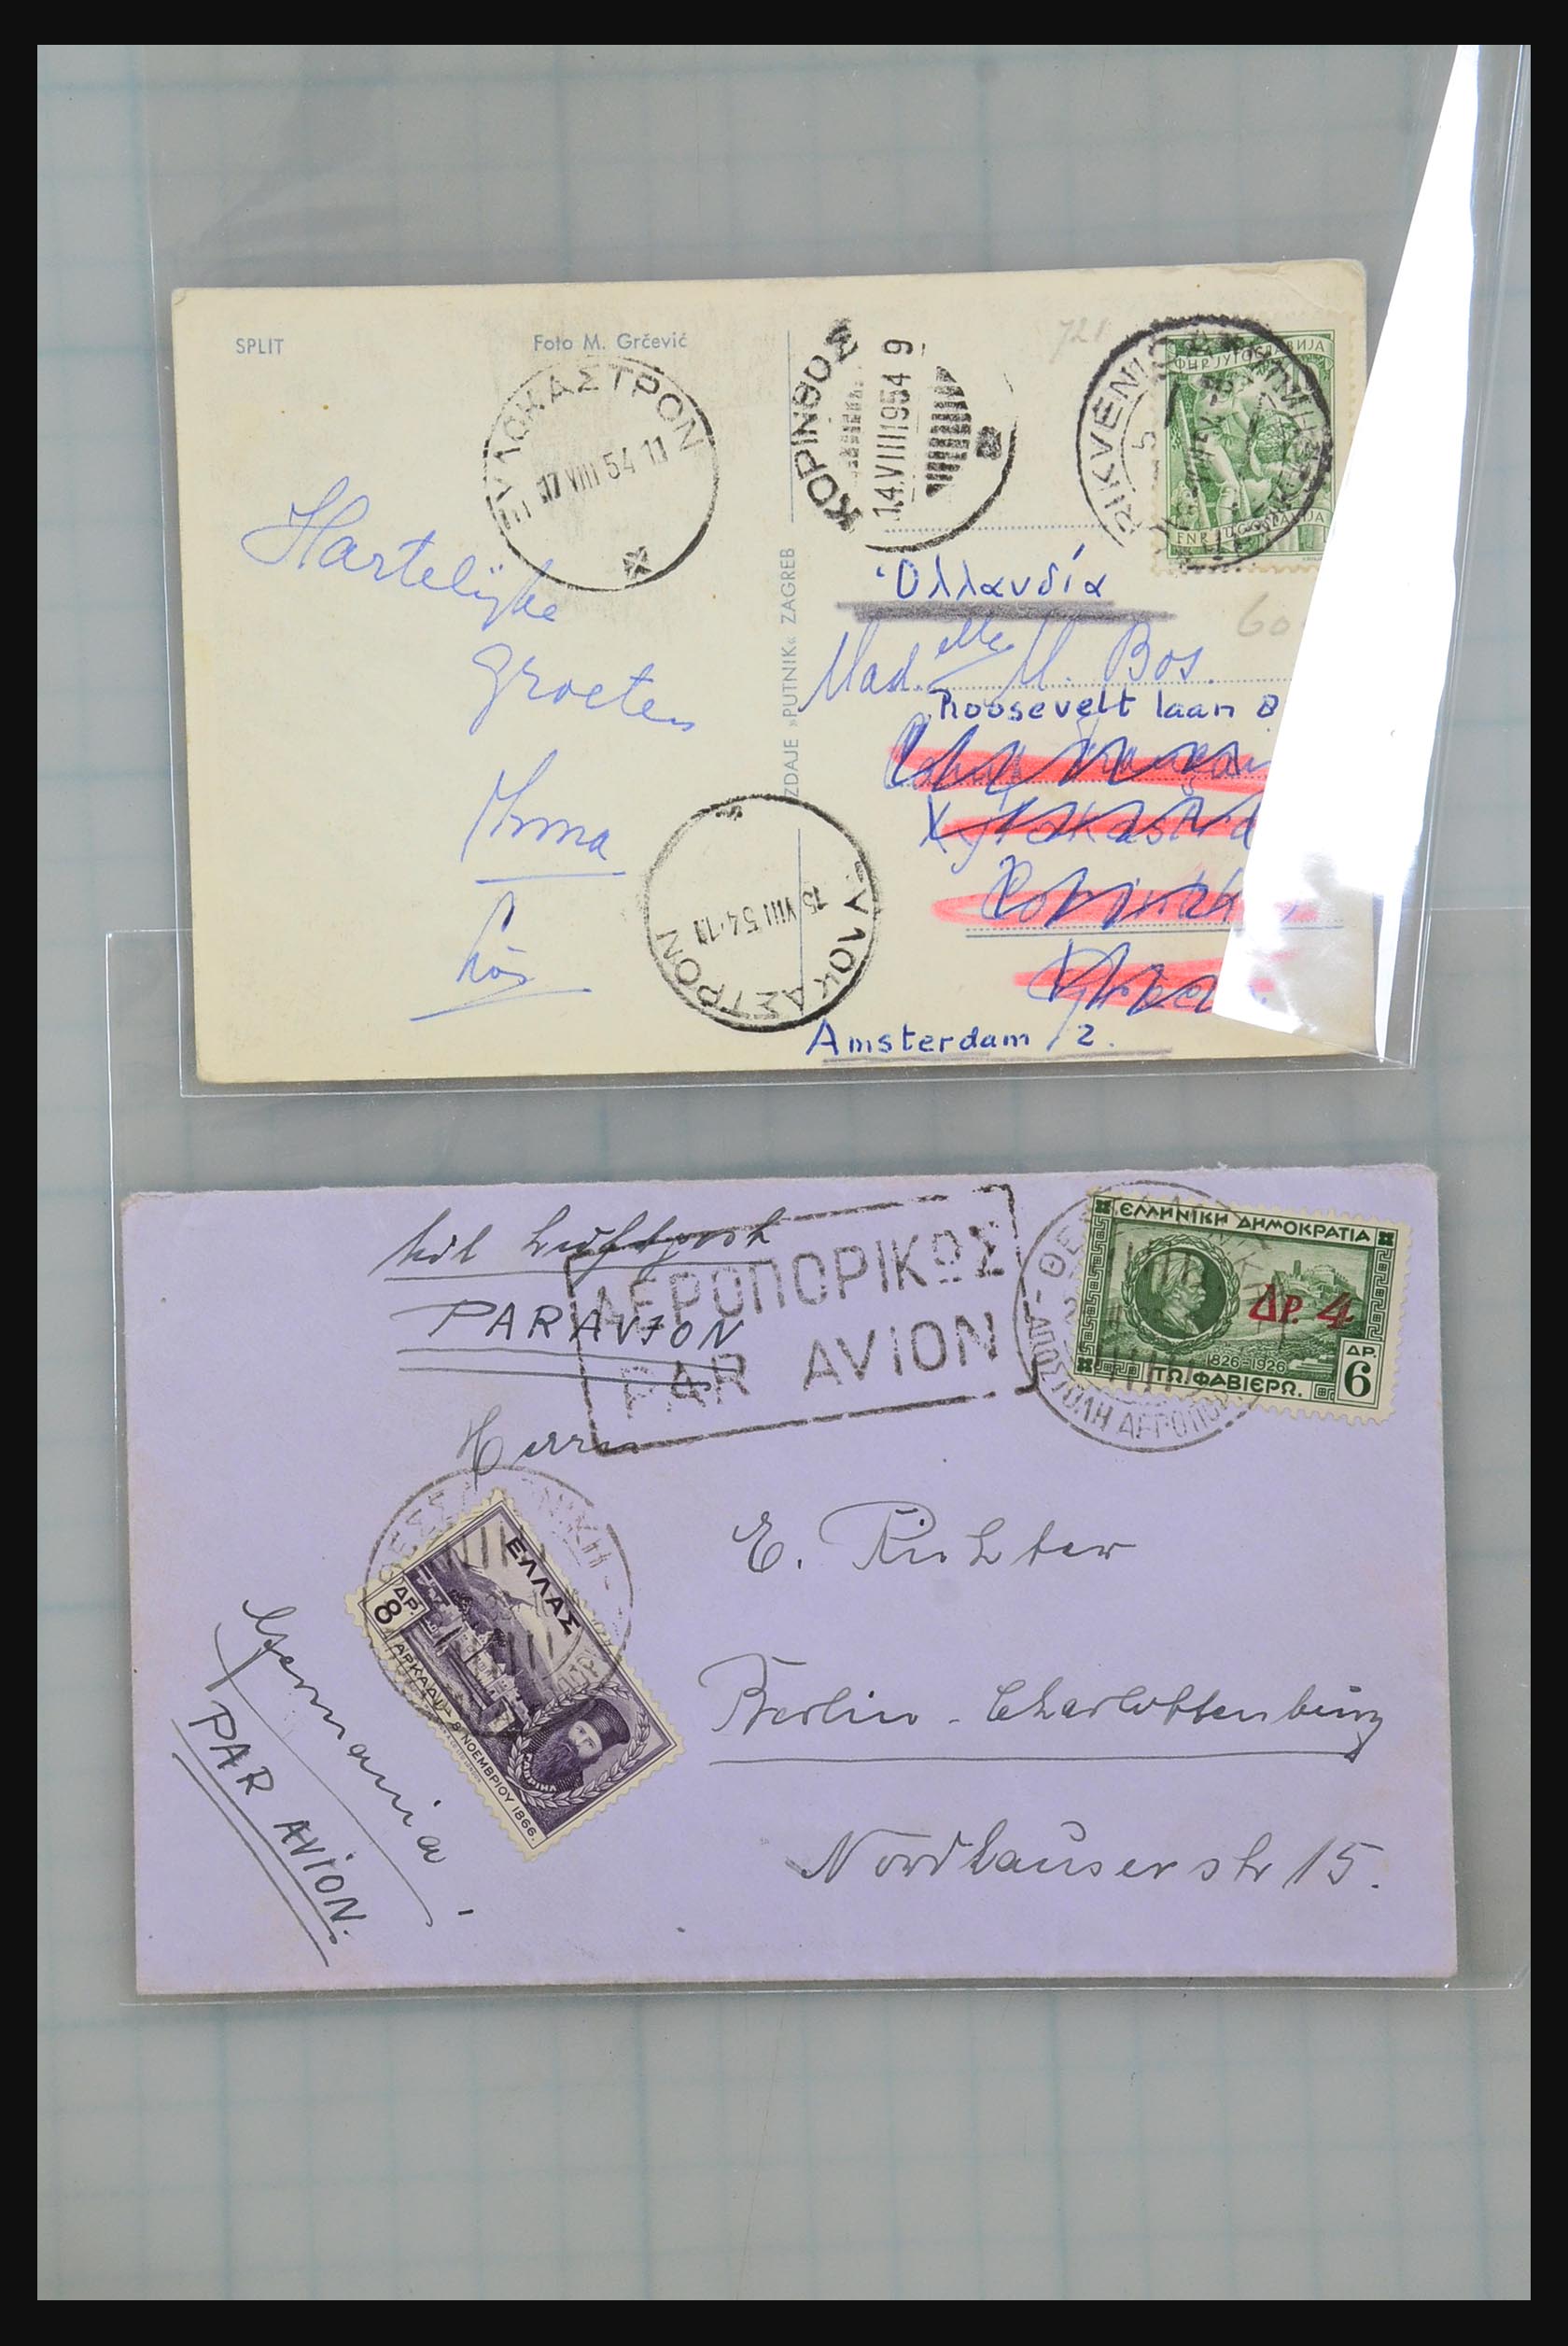 SPLIT
Foto M. Grčević
ΞΥΛΟΚΑΣΤΡΟΝ
17 VIII 54 11
ΚΟΡΙΝΘΟΣ
14.VIII1954 9
721
ФНР ЈУГОСЛАВИЈА
FNR JUGOSLAVIJA
Hartelijke
groeten
Irma
IZDAJE »PUTNIK« ZAGREB
Ολλανδία
60
Mad.elle M. Bos.
Roosevelt laan 8
ΞΥΛΟΚΑΣΤΡΟΝ
15 VIII 54.11
Amsterdam 2.
Mit Luftpost
PAR AVION
ΑΕΡΟΠΟΡΙΚΩΣ
PAR AVION
ΘΕΣΣΑΛΟΝΙΚΗ
ΑΠΟΣΤΟΛΗ ΑΕΡΟΠΟΡ
ΕΛΛΗΝΙΚΗ ΔΗΜΟΚΡΑΤΙΑ
ΔΡ. 4
1826-1926
ΔΡ
6
ΤΩ. ΦΑΒΙΕΡΩ.
Herrn
ΘΕΣΣΑΛΟΝΙΚΗ
ΕΛΛΑΣ
ΔΡ.
8
ΑΡΚΑΔΙ - 8 ΝΟΕΜΒΡΙΟΥ 1866.
ΓΑΒΡΙΗΛ
E. Richter
Berlin - Charlottenburg
Nordhauser str 15.
Germania
PAR AVION.